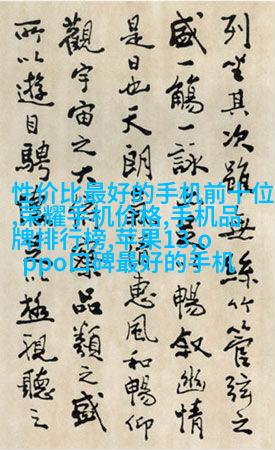 列坐其次雖無絲竹管弦之
盛一觴一詠暢敘幽情
是日也天朗惠風和暢仰
觀宇宙之大品類之盛
所以遊目騁以極視聽之
性价比最好的手机前十位
,荣耀手机价格,手机品
牌排行榜,苹果13,o
ppo口碑最好的手机